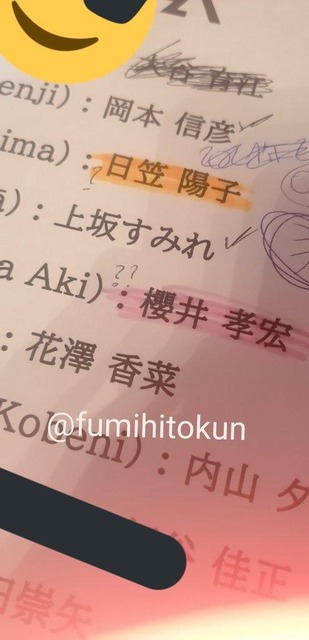 enji)：岡本 信彦
ima)：日笠 陽子
?
)：上坂すみれ
??
a Aki)：櫻井 孝宏
：花澤 香菜
@fumihitokun
Kobeni)：内山 夕
佳正
田崇矢